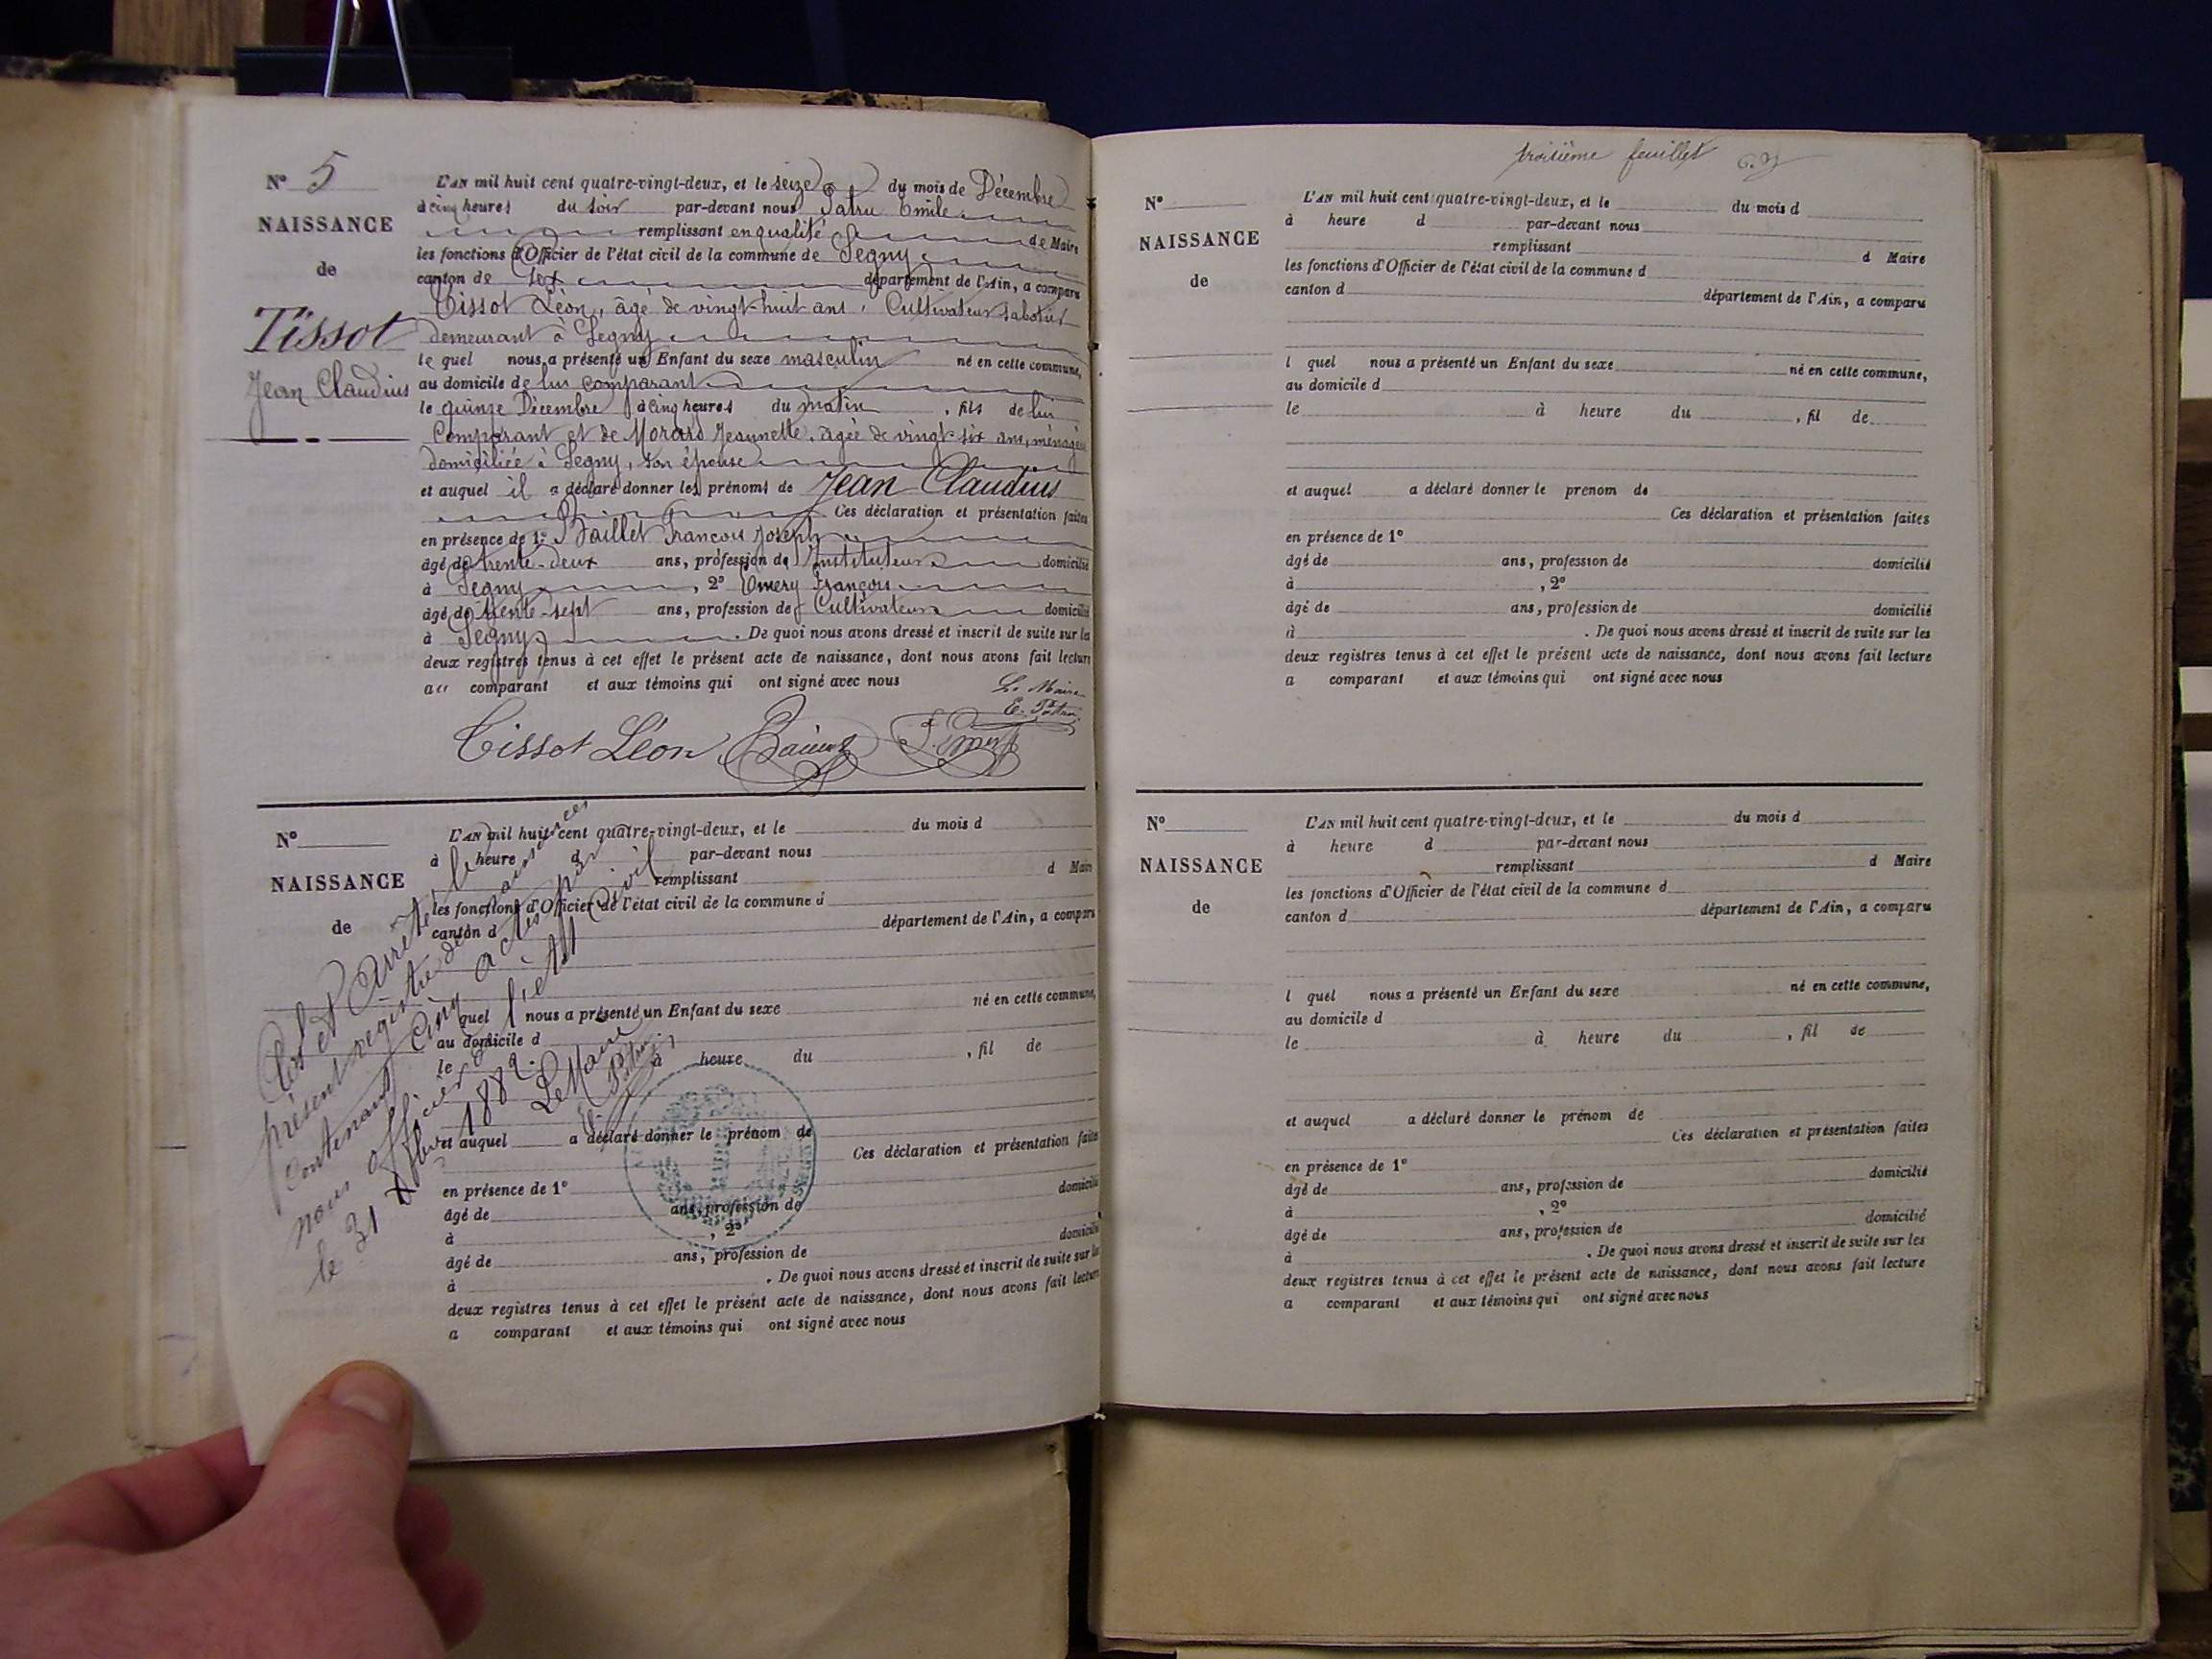 N° 5
NAISSANCE
de
Tissot
Jean Claudius
L'AN mil huit cent quatre-vingt-deux, et le seize du mois de Décembre
à cinq heures du soir par-devant nous Patru Emile
remplissant en qualité de Maire
les fonctions d'Officier de l'état civil de la commune de Segny
canton de Gex département de l'Ain, a comparu
Tissot Léon, âgé de vingt-huit ans, Cultivateur sabotier
demeurant à Segny
le quel nous a présenté un Enfant du sexe masculin né en cette commune,
au domicile de lui comparant
le quinze Décembre à cinq heures du matin, fils de lui
Comparant et de Morard Jeannette, âgée de vingt-six ans, ménagère
domiciliée à Segny, son épouse
et auquel il a déclaré donner les prénoms de Jean Claudius
Ces déclaration et présentation faites
en présence de 1° Baillet François Joseph
âgé de trente-deux ans, profession de Instituteur domicilié
à Segny, 2° Emery François
âgé de trente-sept ans, profession de Cultivateur domicilié
à Segny. De quoi nous avons dressé et inscrit de suite sur les
deux registres tenus à cet effet le présent acte de naissance, dont nous avons fait lecture
au comparant et aux témoins qui ont signé avec nous
Le Maire
E. Patru
Tissot Léon
F. Emery
N°
NAISSANCE
de
L'AN mil huit cent quatre-vingt-deux, et le du mois d
à heure d par-devant nous
remplissant d Maire
les fonctions d'Officier de l'état civil de la commune d
canton d département de l'Ain, a comparu
quel nous a présenté un Enfant du sexe né en cette commune,
au domicile d
le à heure du , fil de
et auquel a déclaré donner le prénom de
Ces déclaration et présentation faites
en présence de 1° domicilié
âgé de ans, profession de
à , 2° domicilié
âgé de ans, profession de
à . De quoi nous avons dressé et inscrit de suite sur les
deux registres tenus à cet effet le présent acte de naissance, dont nous avons fait lecture
a comparant et aux témoins qui ont signé avec nous
Clos et Arrêté le
présent registre de naissances
contenant Cinq actes par
nous officier de l'état Civil
le 31 Xbre 1882.
Le Maire
E. Patru
troisième feuillet
N°
NAISSANCE
de
L'AN mil huit cent quatre-vingt-deux, et le du mois d
à heure d par-devant nous
remplissant d Maire
les fonctions d'Officier de l'état civil de la commune d
canton d département de l'Ain, a comparu
l quel nous a présenté un Enfant du sexe né en cette commune,
au domicile d
le à heure du , fil de
et auquel a déclaré donner le prenom de
Ces déclaration et présentation faites
en présence de 1°
âgé de ans, profession de domicilié
à , 2°
âgé de ans, profession de domicilié
à . De quoi nous avons dressé et inscrit de suite sur les
deux registres tenus à cet effet le présent acte de naissance, dont nous avons fait lecture
a comparant et aux témoins qui ont signé avec nous
N°
NAISSANCE
de
L'AN mil huit cent quatre-vingt-deux, et le du mois d
à heure d par-devant nous
remplissant d Maire
les fonctions d'Officier de l'état civil de la commune d
canton d département de l'Ain, a comparu
l quel nous a présenté un Enfant du sexe né en cette commune,
au domicile d
le à heure du , fil de
et auquel a déclaré donner le prénom de
Ces déclaration et présentation faites
en présence de 1°
âgé de ans, profession de domicilié
à , 2°
âgé de ans, profession de domicilié
à . De quoi nous avons dressé et inscrit de suite sur les
deux registres tenus à cet effet le présent acte de naissance, dont nous avons fait lecture
a comparant et aux témoins qui ont signé avec nous